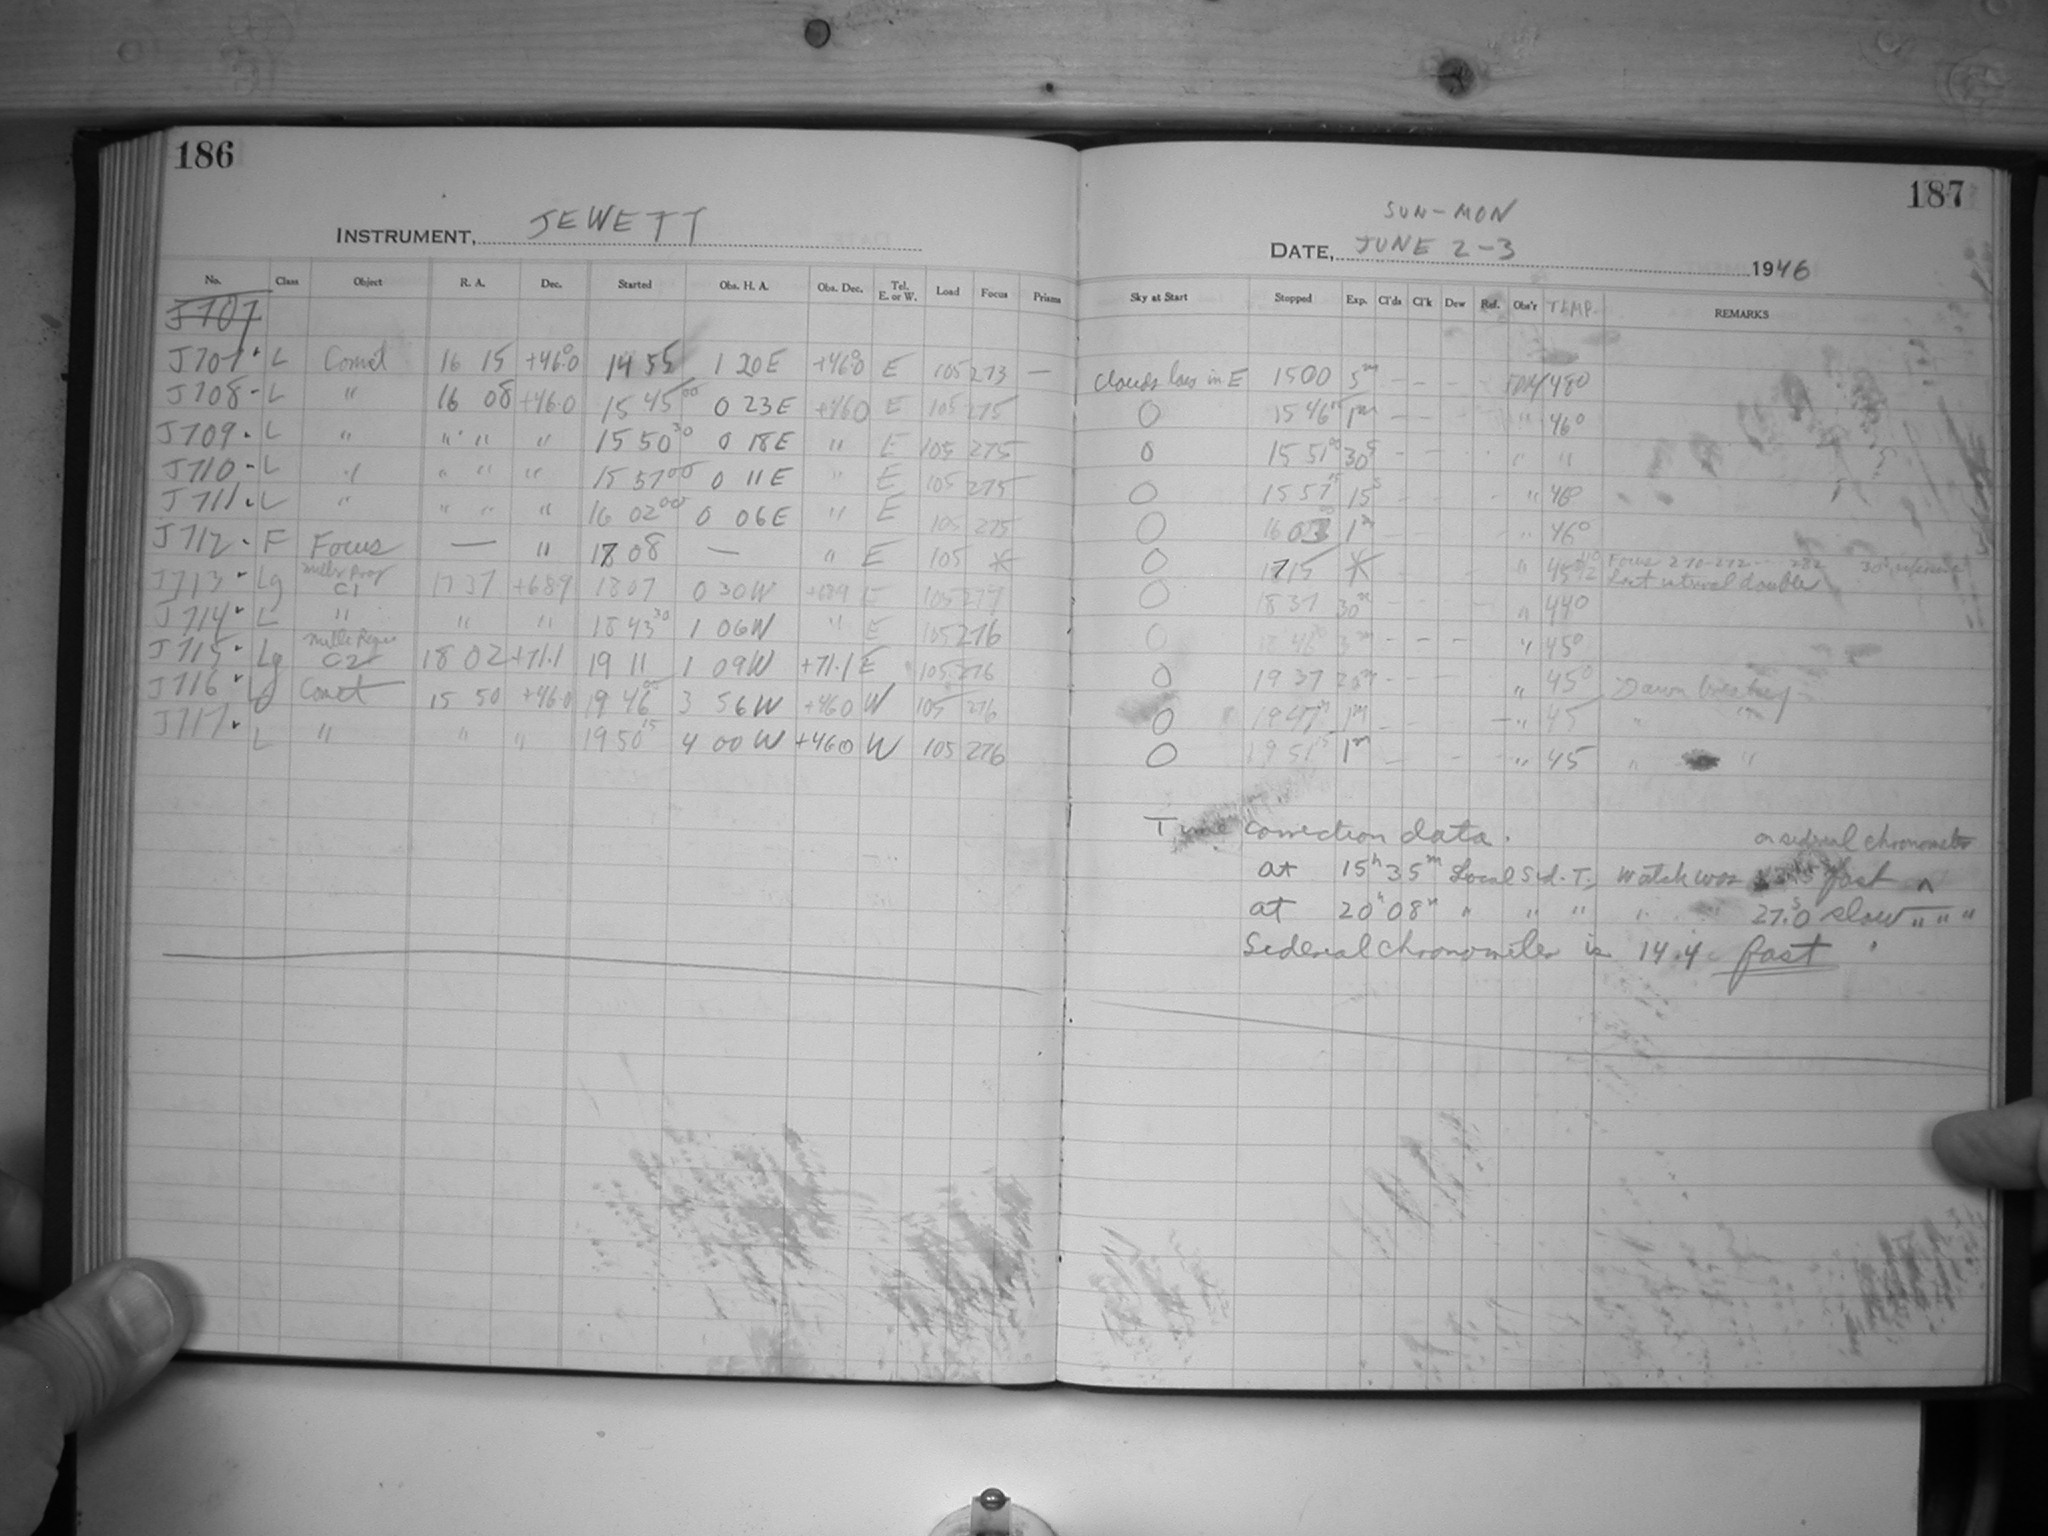 186
INSTRUMENT, JEWETT
No. Class Object R. A. Dec. Started Obs. H. A. Obs. Dec. Tel. E. or W. Load Focus Prisms
J707
J707 L Comet 16 15 +46.0 14 55 1 20E +46.0 E 105 273 —
J708 - L " 16 08 +46.0 15 45 00 0 23E +460 E 105 275
J709 - L " " " " 15 50 30 0 18E " E 105 275
J710 - L " " " " 15 57 00 0 11E " E 105 275
J711 - L " " " " 16 02 00 0 06E " E 105 275
J712 - F Focus — " 17 08 — " E 105 *
J713 - Lg C1 17 37 +689 1807 0 30W +689 E 105 277
J714 - L " " " 18 43 30 1 06W " E 105 276
J715 - Lg C2 18 02 +71.1 19 11 1 09W +71.1 E 105 276
J716 - Lg Comet 15 50 +46.0 19 46 00 3 56W +460 W 105 276
J717 - L " " " 19 50 15 4 00W +460 W 105 276
187
SUN-MON
DATE, JUNE 2-3 1946
Sky at Start Stopped Exp. Cl'ds Cl'k Dew Ref. Obs'r TEMP. REMARKS
Clouds low in E 1500 5m - - - 48°
O 15 46 1m - - - " 46°
O 15 51 00 30s - - - " "
O 15 57 15 15s - - - " 46°
O 16 03 00 1m - - - " 46°
O 1715 * - - - " Focus 270-272---282
Last interval double
O 1837 30m - - - " 440
O 3m - - - " 45°
O 19 37 - - - " 45° Dawn breaking
O 19 47 1m - - - " 45 " "
O 19 51 15 1m - - - " 45 " "
Time correction data.
at 15h 35m Local Sid. T., Watch was fast ^ on sidereal chronometer
at 20h 08m " " " " " 27.s0 slow " " "
Sidereal Chronometer is 14.4 fast